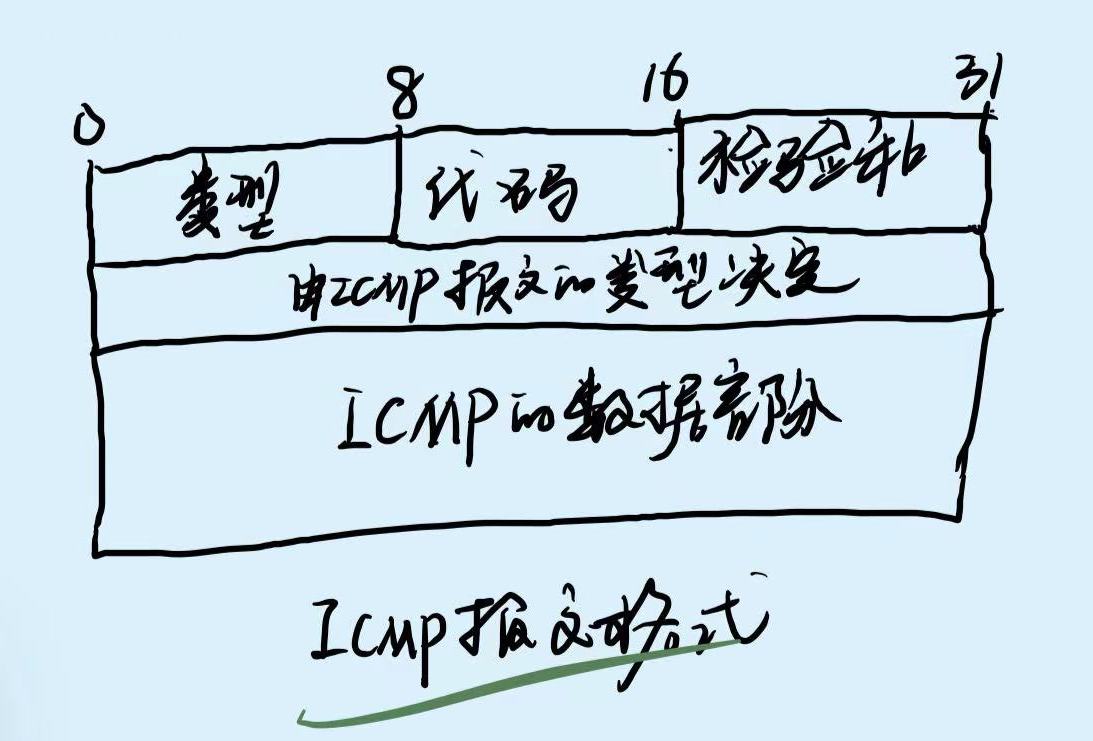 0 8 16 31
类型 代码 检验和
由ICMP报文的类型决定
ICMP的数据部份
ICMP报文格式